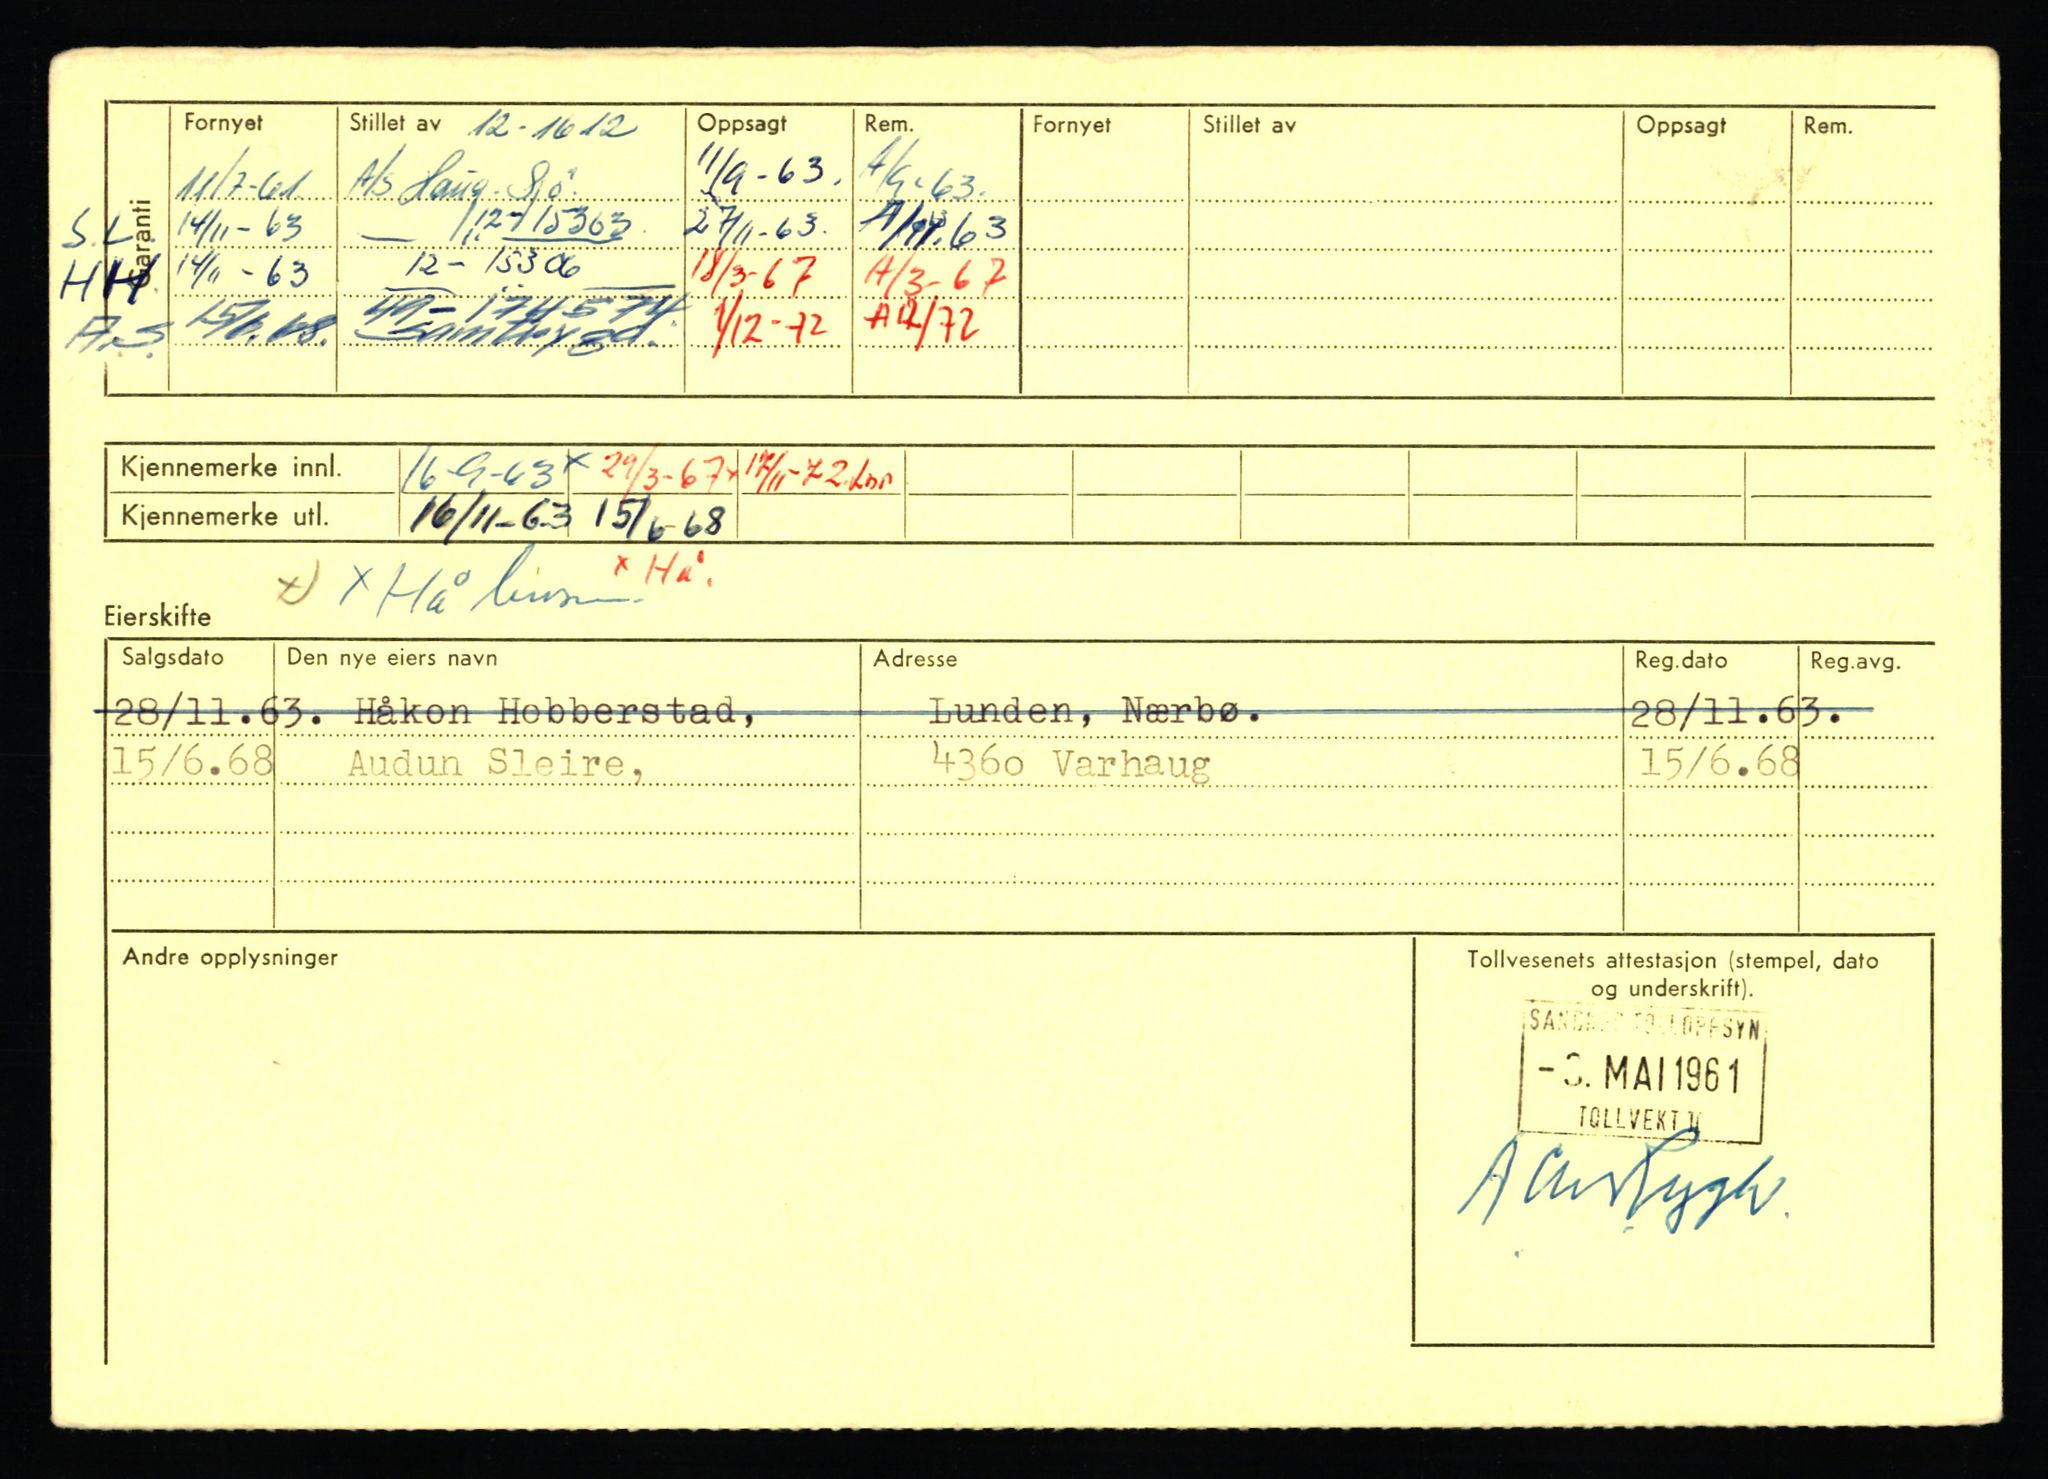 Fornyet Stillet av 12-1612 Oppsagt Rem. Fornyet Stillet av Oppsagt Rem.
Garanti
11/7-61. A/S Haug. Sjø. 11/9-63. A/9-63.
S.L. 14/11-63 12-15363. 27/11-63. 63
HH. 14/11-63 12-15306 18/3-67 A/3-67
A.S. 15/6.68. 49-174574. 1/12-72 A12/72
Samtrygd.
Kjennemerke innl. 16-9-63 x 29/3-67x 17/11-72
Kjennemerke utl. 16/11-63 15/6-68
x) x Hå x Hå.
Eierskifte
Salgsdato Den nye eiers navn Adresse Reg.dato Reg.avg.
28/11.63. Håkon Hobberstad, Lunden, Nærbø. 28/11.63.
15/6.68 Audun Sleire, 4360 Varhaug 15/6.68
Andre opplysninger
Tollvesenets attestasjon (stempel, dato
og underskrift).
SANDNES TOLLOPPSYN
MAI 1961
TOLLVEKT